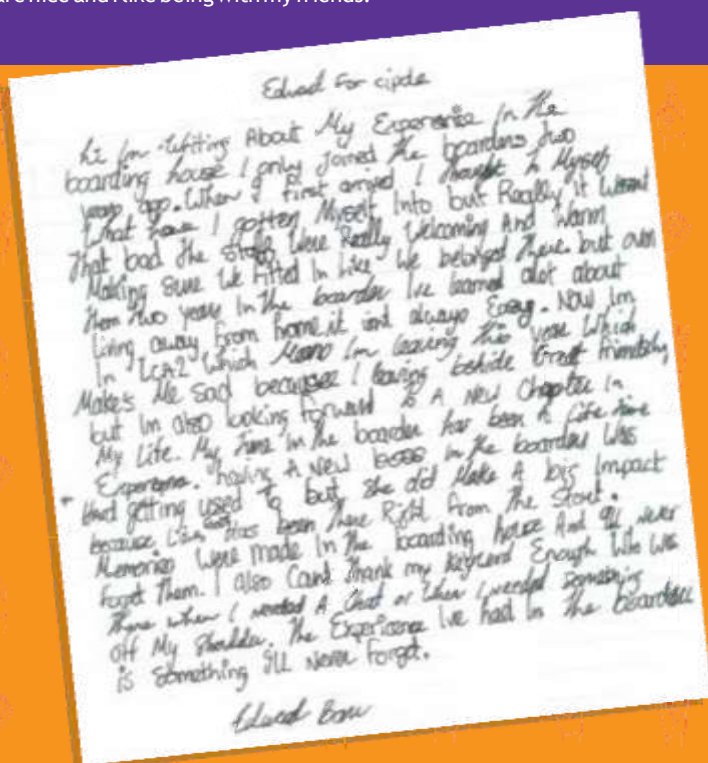 are nice and I like being with my friends.
Edward For
hi Im writing About My Experience In the
boarding house I only Joined The boarders two
years ago. When I first arrived I thought to Myself
What have I gotten Myself Into but Really it Wasnt
that bad the staff Were Really Welcoming And Warm
Making Sure We fitted In Like We belonged There. but over
them two years In the boarder Ive learned alot about
living away from home it isnt always Easy. Now Im
In LCA2 Which Means Im leaving this year Which
Makes Me Sad because I leaving behide Great friendships
but Im also looking forward to A New Chapter In
My Life. My time In the boarder has been A Life time
Experience. having A New boss in the boarders Was
getting used to but She did Make A big Impact
because has been There Right from The Start.
Memories Were made In The boarding house And Ill never
forget Them. I also Cant Thank my Keyword Enough Who Was
There when I needed A Chat or When I needed Something
off My Shoulder. The Experience Ive had In The boarders
is Something Ill Never Forget.
Edward